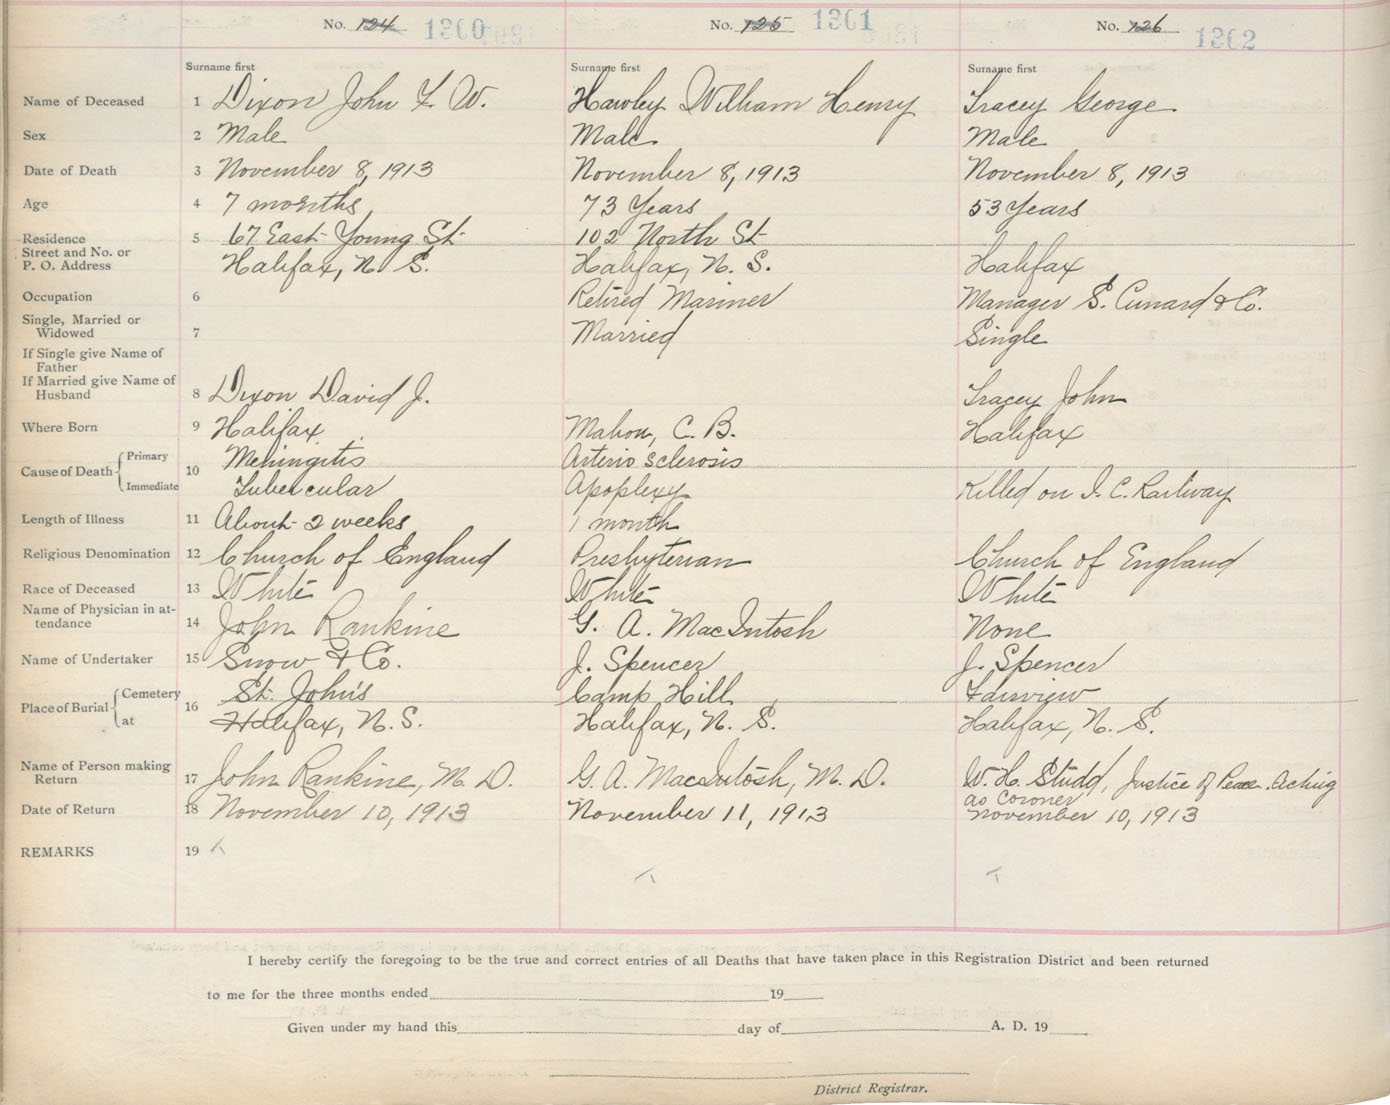 No. 124 1300 No. 125 1301 No. 126 1302
Surname first Surname first Surname first
Name of Deceased 1 Dixon John F. W. Hawley William Henry Tracey George
Sex 2 Male Male Male
Date of Death 3 November 8, 1913 November 8, 1913 November 8, 1913
Age 4 7 months 73 Years 53 Years
Residence 5 67 East Young St 102 North St
Street and No. or
P. O. Address Halifax, N. S. Halifax, N. S. Halifax
Occupation 6 Retired Mariner Manager S. Cunard & Co.
Single, Married or
Widowed 7 Married Single
If Single give Name of
Father
If Married give Name of
Husband 8 Dixon David J. Tracey John
Where Born 9 Halifax Mabou, C. B. Halifax
Cause of Death Primary 10 Meningitis Arterio sclerosis
Immediate Tubercular Apoplexy Killed on I. C. Railway
Length of Illness 11 About 2 weeks 1 month
Religious Denomination 12 Church of England Presbyterian Church of England
Race of Deceased 13 White White White
Name of Physician in at-
tendance 14 John Rankine G. A. MacIntosh None
Name of Undertaker 15 Snow & Co. J. Spencer J. Spencer
Place of Burial Cemetery 16 St. John's Camp Hill Fairview
at Halifax, N. S. Halifax, N. S. Halifax, N. S.
Name of Person making
Return 17 John Rankine, M. D. G. A. MacIntosh, M. D. W. H. Studd, Justice of Peace Acting
as Coroner
Date of Return 18 November 10, 1913 November 11, 1913 November 10, 1913
REMARKS 19
I hereby certify the foregoing to be the true and correct entries of all Deaths that have taken place in this Registration District and been returned
to me for the three months ended 19
Given under my hand this day of A. D. 19
District Registrar.